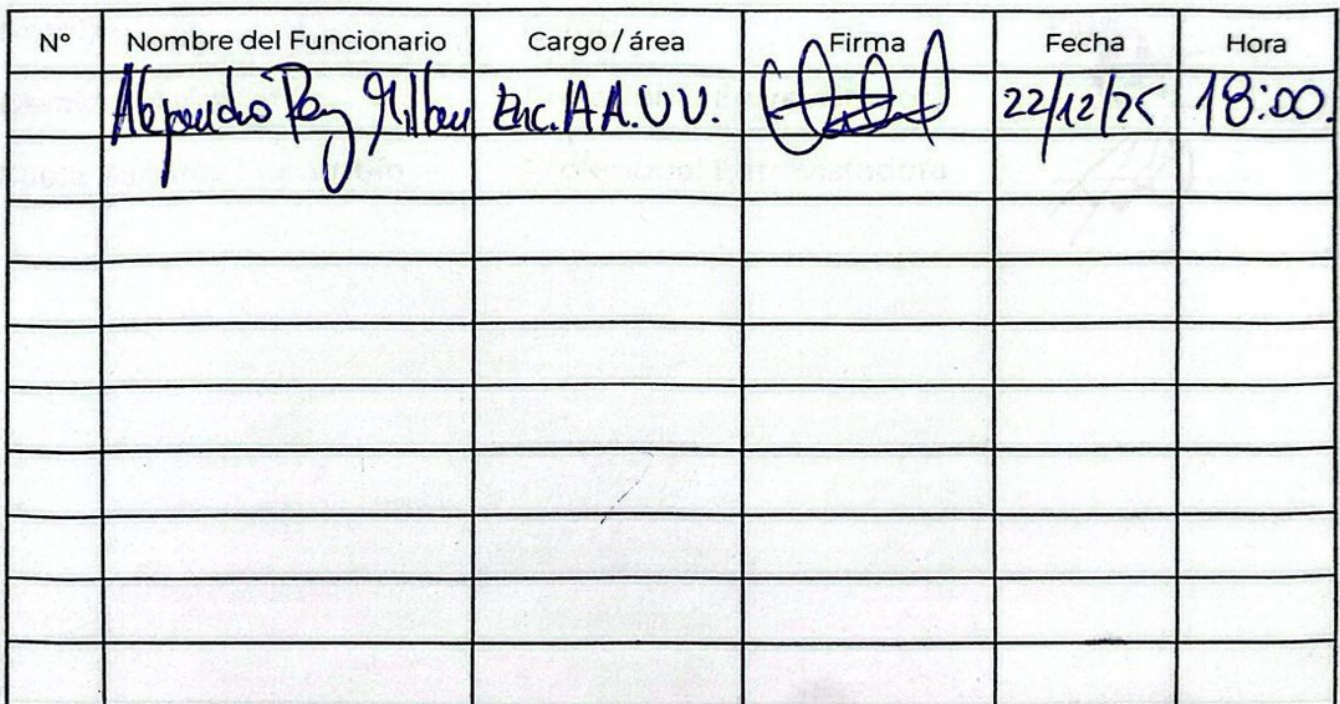 N° Nombre del Funcionario Cargo / área Firma Fecha Hora
Alejandro Paz Millan Enc. AA.VV. 22/12/25 18:00.